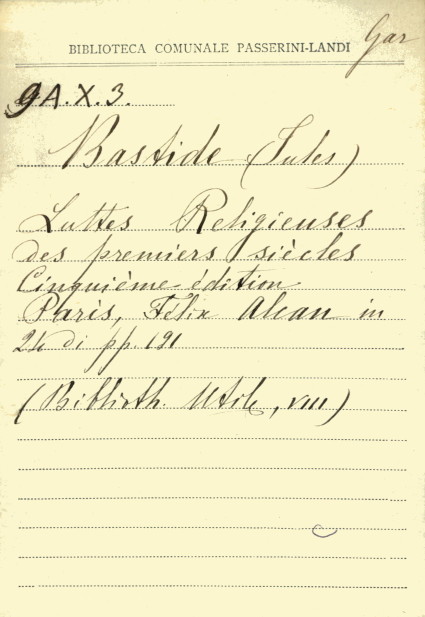 Gar
BIBLIOTECA COMUNALE PASSERINI-LANDI
9A.X.3.
Bastide (Jules)
Luttes Religieuses
des premiers siècles
Cinquième édition
Paris, Félix Alcan in
24 di pp. 191
(Biblioth. Utile, VIII)